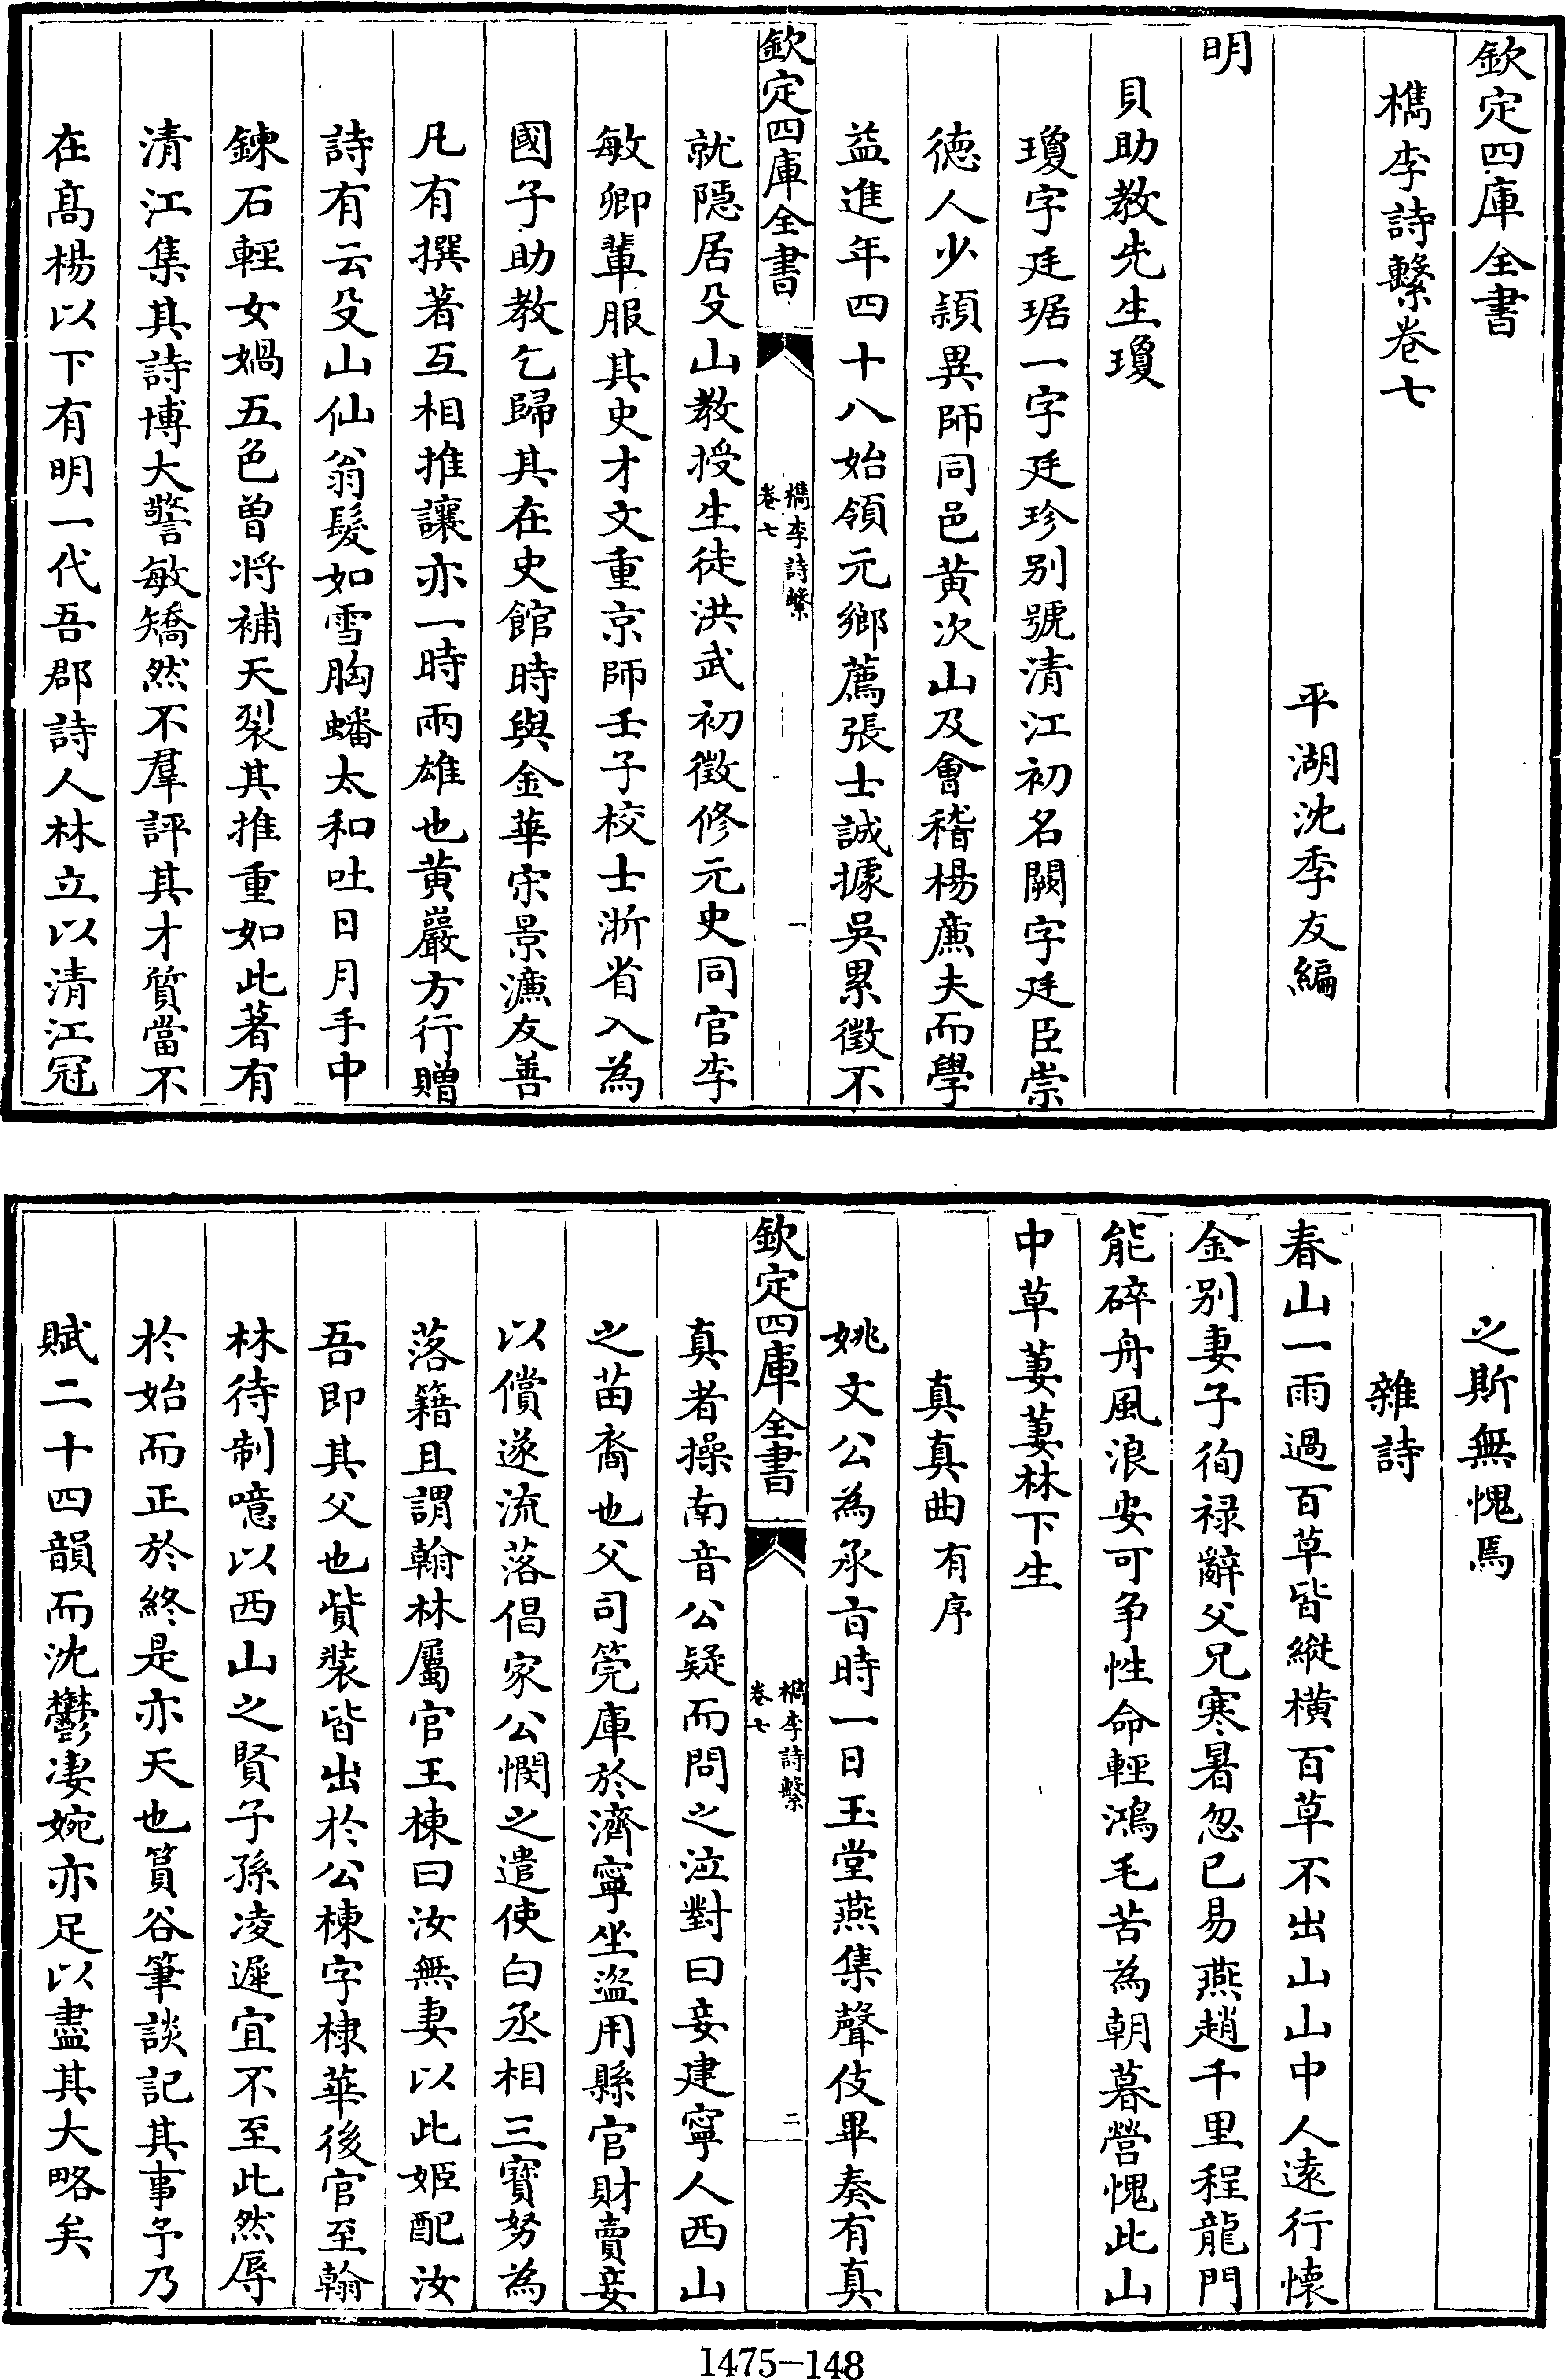 欽定四庫全書
檇李詩繫卷七
平湖沈季友編
明
貝助教先生瓊
瓊字廷琚一字廷珍别號清江初名闕字廷臣崇
德人少頴異師同邑黄次山及會稽楊廉夫而學
益進年四十八始領元鄉薦張士誠據吳累徵不
欽定四庫全書
檇李詩繫
卷七
一
就隱居殳山教授生徒洪武初徵修元史同官李
敏卿輩服其史才文重京師壬子校士浙省入為
國子助教乞歸其在史館時與金華宋景濂友善
凡有撰著互相推讓亦一時兩雄也黄巖方行贈
詩有云殳山仙翁髮如雪胸蟠太和吐日月手中
鍊石輕女媧五色曽将補天裂其推重如此著有
清江集其詩博大警敏矯然不羣評其才質當不
在髙楊以下有明一代吾郡詩人林立以清江冠
之斯無愧焉
雜詩
春山一雨過百草皆縱橫百草不出山山中人逺行懐
金别妻子徇禄辭父兄寒暑忽已易燕趙千里程龍門
能碎舟風浪安可争性命輕鴻毛苦為朝暮營愧此山
中草萋萋林下生
真真曲有序
姚文公為承㫖時一日玉堂燕集聲伎畢奏有真
欽定四庫全書
檇李詩繫
卷七
二
真者操南音公疑而問之泣對曰妾建寧人西山
之苗裔也父司筦庫於濟寧坐盜用縣官財賣妾
以償遂流落倡家公憫之遣使白丞相三寳努為
落籍且謂翰林屬官王棟曰汝無妻以此姬配汝
吾即其父也貲装皆出於公棟字棣華後官至翰
林待制噫以西山之賢子孫凌遲宜不至此然辱
於始而正於終是亦天也篔谷筆談記其事予乃
賦二十四韻而沈鬱凄婉亦足以盡其大略矣
1475-148